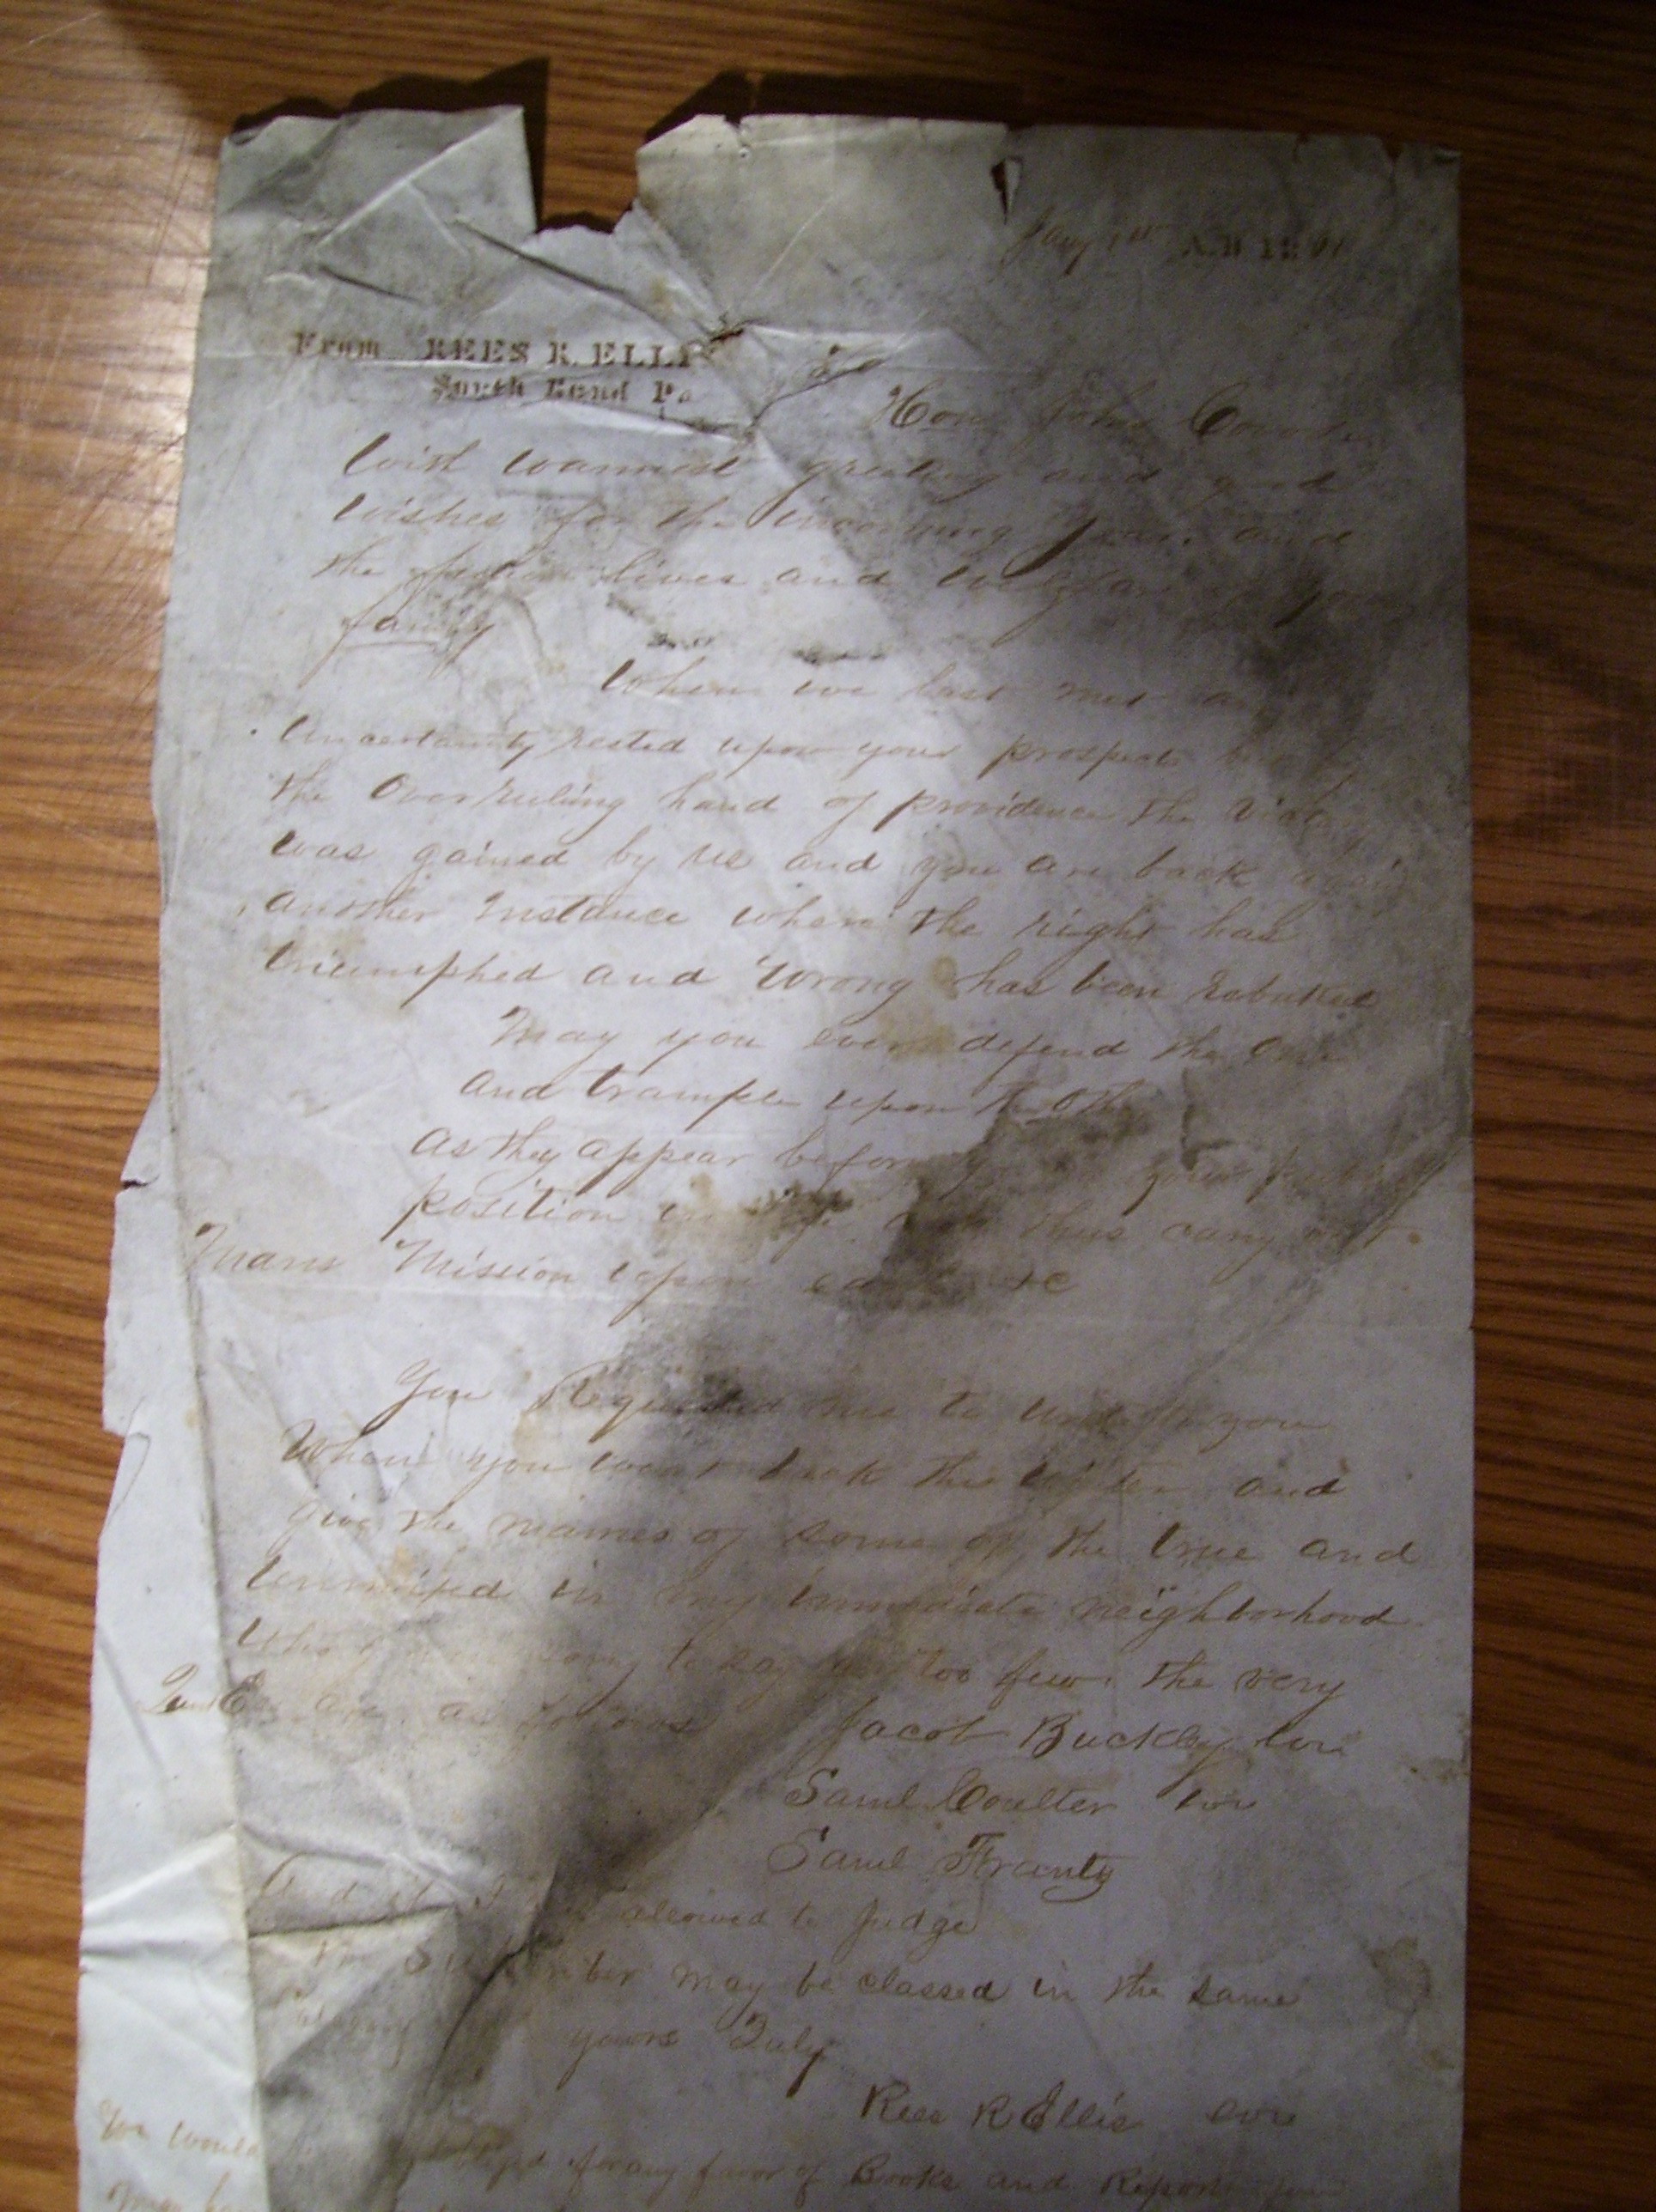 Jany 1st A.D 18
From REES R. ELLI
South Bend Pa
Hon John
With warmest greeting and good
wishes for the incoming year and
the lives and of your
family
When we last met an
uncertainty rested upon your prospects but by
the Overruling hand of providence the victory
was gained by us and you are back again
another Instance where the right has
triumphed and Wrong has been rebuked
May you ever defend the One
and trample upon the other
as they appear before your
position in thus carry out
Mans Mission upon
You Requested me to you
When you went back this Winter and
give the names of some of the true and
in my immediate neighborhood
Who sorry to say are too few. the very
are as follows Jacob Buckley
Saml Coulter
Saml Frantz
And if I allowed to Judge
the Subscriber may be classed in the same
yours Truly
Rees R Ellis
You would for any favor of Books and Reports you
may